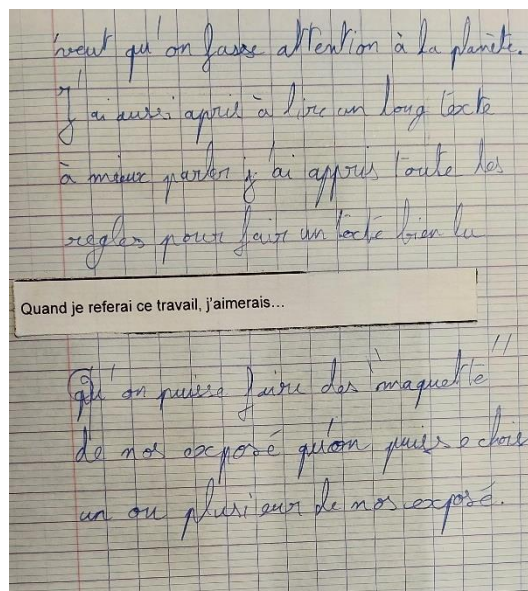 veut qu'on fasse attention à la planète.
J'ai aussi apris à lire un long texte
à mieux parler j'ai appris toute les
regles pour fair un texte bien lu
Quand je referai ce travail, j'aimerais...
Qu'on puisse faire des "maquette"
de nos exposé qu'on puisse chois
un ou plusieur de nos exposé.